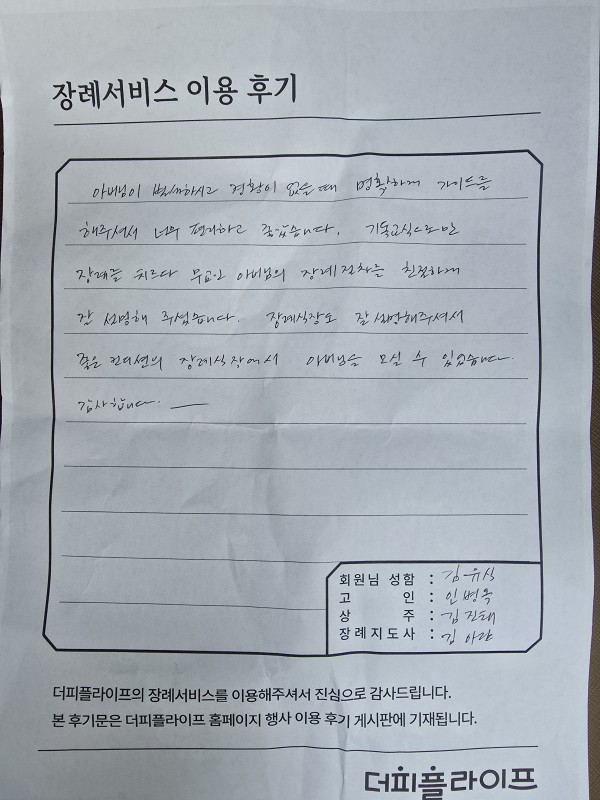 장례서비스 이용 후기
아버님이 별세하시고 경황이 없을 때 명확하게 가이드를
해주셔서 너무 편리하고 좋았습니다. 기독교식으로만
장례를 치르다 무교인 아버님의 장례절차는 친절하게
잘 설명해 주셨습니다. 장례식장도 잘 설명해주셔서
좋은 컨디션의 장례식장에서 아버님을 모실 수 있었습니다.
감사합니다.
회원님 성함 : 김유식
고 인 : 인병옥
상 주 : 김진태
장례지도사 : 김아란
더피플라이프의 장례서비스를 이용해주셔서 진심으로 감사드립니다.
본 후기문은 더피플라이프 홈페이지 행사 이용 후기 게시판에 기재됩니다.
더피플라이프